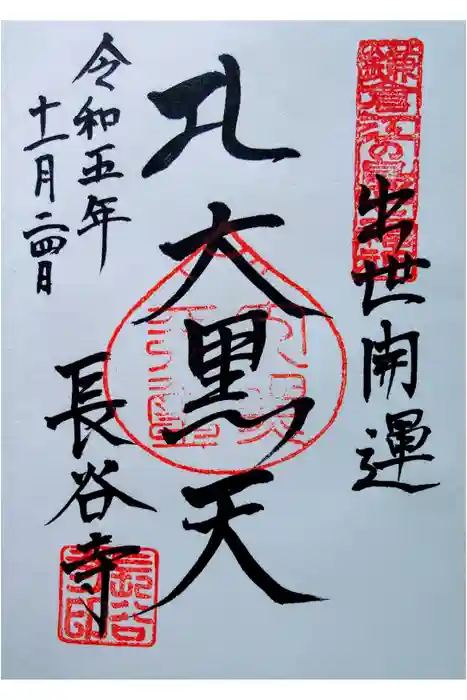 鎌倉江の島七福神
出世開運
大黒天
長谷寺
令和五年
十一月二四日